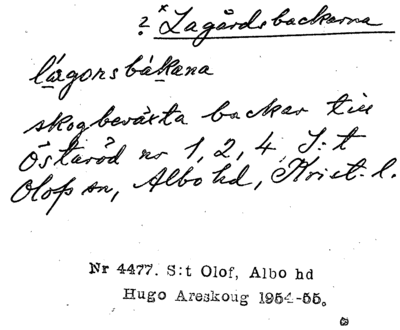 ? × Lagårdsbackarna
lágonsbákana
skogbeväxta backar till
Östaröd nr 1, 2, 4, S:t
Olofs sn, Albo hd, Krist. l.
Nr 4477. S:t Olof, Albo hd
Hugo Areskoug 1954-55.